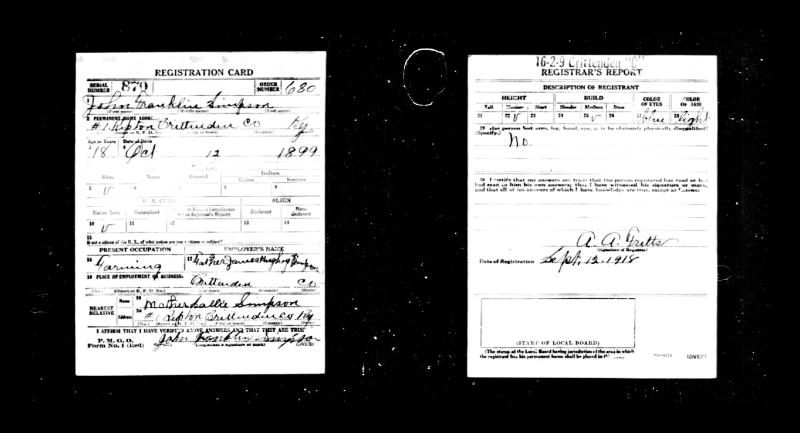 REGISTRATION CARD
SERIAL NUMBER 879
ORDER NUMBER 680
John Franklin Simpson
2 PERMANENT HOME ADDRESS
#1 Repton Crittenden Co Ky
Age in Years Date of Birth
18 Oct 12 1899
White Negro Oriental Indian
5 v
U. S. CITIZEN ALIEN
Native Born Naturalized Declared
10 v 11 12 13 14
15
If not a citizen of the U. S., of what nation are you a citizen or subject?
PRESENT OCCUPATION EMPLOYER'S NAME
16 Farming 17 Father James Simpson
18 PLACE OF EMPLOYMENT OR BUSINESS
Crittenden Co
NEAREST RELATIVE
Name 19 Mother Sallie Simpson
20 #1 Repton Crittenden Co Ky
I AFFIRM THAT I HAVE VERIFIED ABOVE ANSWERS AND THAT THEY ARE TRUE
P. M. G. O.
Form No. 1 (Red) John Franklin Simpson
(OVER)
16-2-9 Crittenden "C"
REGISTRAR'S REPORT
DESCRIPTION OF REGISTRANT
HEIGHT BUILD COLOR OF EYES COLOR OF HAIR
Tall Medium Short Slender Medium Stout
21 22 v 23 24 25 v 26 27 blue 28 light
29 Has person lost arm, leg, hand, eye, or is he obviously physically disqualified?
(Specify.) No.
30 I certify that my answers are true; that the person registered has read or has
had read to him his own answers; that I have witnessed his signature or mark,
and that all of his answers of which I have knowledge are true, except as follows:
A. A. Fritts
(Signature of Registrar)
Date of Registration Sept. 12-1918
(STAMP OF LOCAL BOARD)
(The stamp of the Local Board having jurisdiction of the area in which
the registrant has his permanent home shall be placed in this box.)
(OVER)